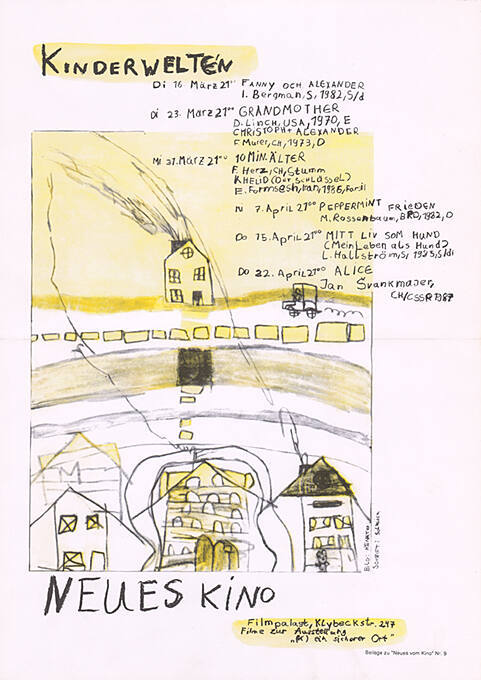 KINDERWELTEN
Di 16 März 21⁰⁰ FANNY OCH ALEXANDER
I. Bergman, S, 1982, S/d
Di 23. März 21⁰⁰ GRANDMOTHER
D. Linch, USA, 1970, E
CHRISTOPH + ALEXANDER
F Murer, CH, 1973, D
Mi 31. März 21⁰⁰ 10 MIN. ÄLTER
F. Herz, CH, Stumm
KHELID (Der SCHLÜSSEL)
7. April 21⁰⁰ PEPPERMINT FRIEDEN
M. Rossenbaum, BRD, 1982, D
Do 15. April 21⁰⁰ MITT LIV SOM HUND
(Mein Leben als Hund)
L. Hallström, S, S/di
Do 22. April 21⁰⁰ ALICE
Jan Švankmajer,
CH/CSSR 1987
NEUES KINO
Filmpalast, Klybeckstr. 247
Filme zur Ausstellung
ein sicherer Ort"
Beilage zu "Neues vom Kino" Nr. 9